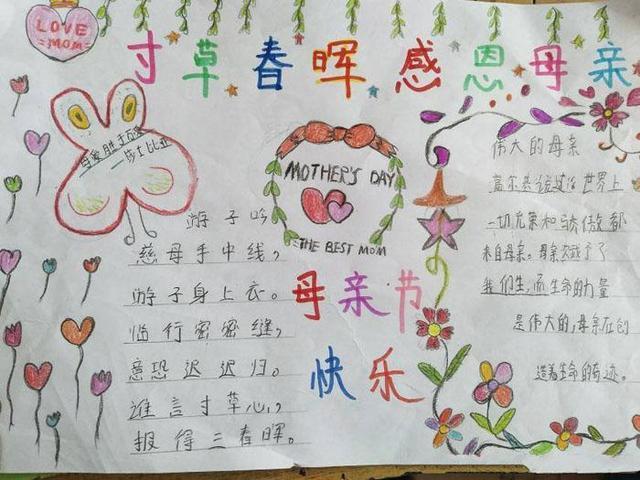 LOVE
=MOM=
寸草春晖 感恩母亲
母爱胜
——莎士比亚
MOTHER'S DAY
THE BEST MOM
母亲节
快乐
游子吟
慈母手中线，
游子身上衣。
临行密密缝，
意恐迟迟归。
谁言寸草心，
报得三春晖。
伟大的母亲
高尔基说过：世界上
一切光荣和骄傲都
来自母亲。母亲予了
我们生，而生命的力量
是伟大的，母亲在创
造着生命的奇迹。